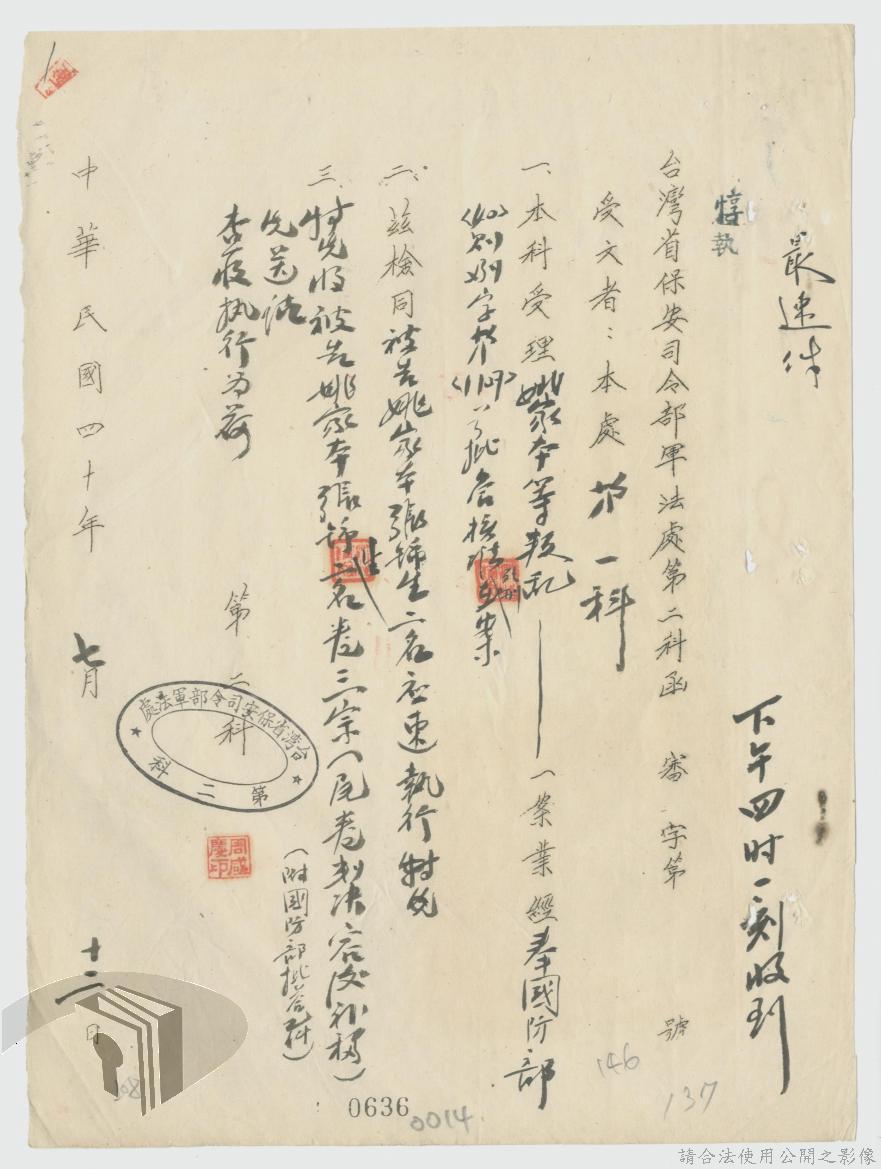 最速件
下午四时一刻收到
惇执
台灣省保安司令部軍法處第二科函 審 字第 號
受文者：本處 第一科
一、本科受理姚家本等叛乱一案業經奉國防部
(40) 字第(1109)号批答核准在案
二、茲檢同被告姚家本張錦生二名应速執行
三、特先将被告姚家本張錦生二名卷三宗(原卷判决容後补移)
先送請
查照执行为荷
(附國防部批答
第二科
台灣省保安司令部軍法處
第二科
周咸慶印
中華民國四十年 七月 十二日
146
137
108
0636
0014
請合法使用公開之影像